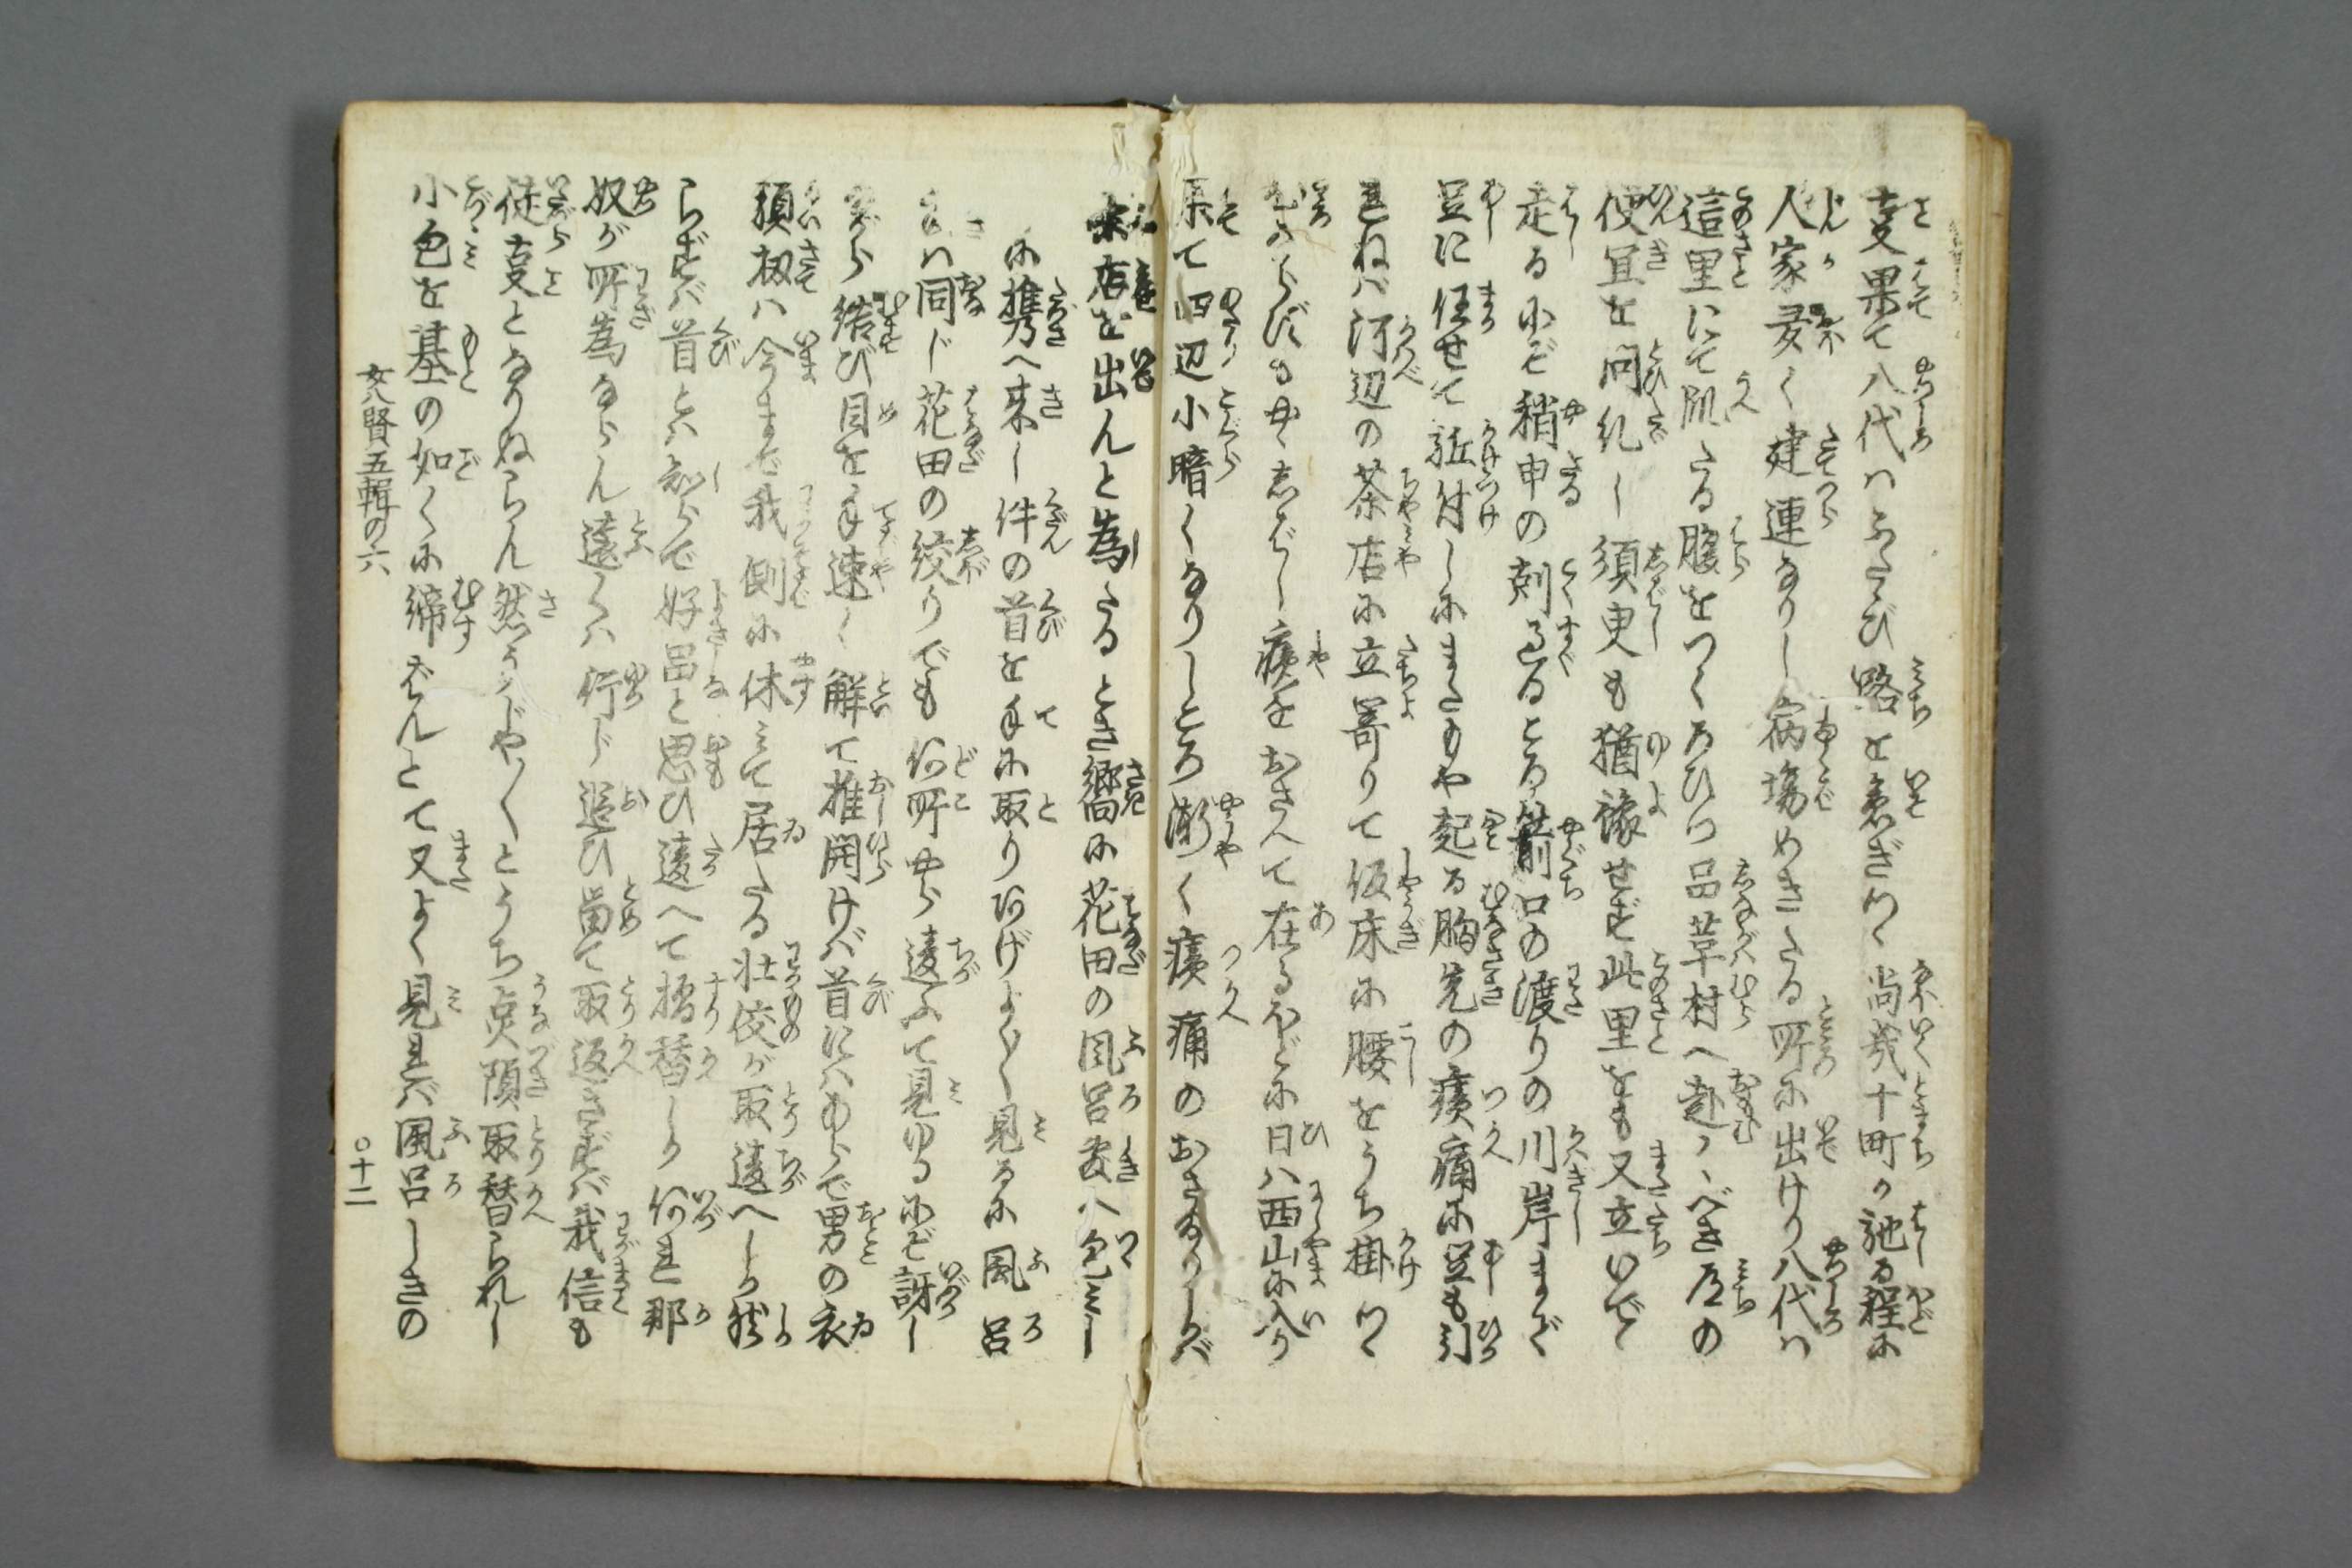 亊果て八代ハふたゝび路を急ぎつゝ尚幾十町か馳る程に
人家多く建連なりし病場めきたる所に出けり八代ハ
這里にて肌たる腹をつくろひつ品草村へ赴くべき道の
便宜を問糺し須臾も猶豫せず此里をも又立いでゝ
走るにぞ稍申の刻過るころ箭口の渡りの川岸まで
足に任せて駈付しにまたもや起る胸先の癪痛に足も引
れねバ河辺の茶店に立寄りて仮床に腰をうち掛つゝ
ならずも やゝしばし癪をおさへて在るほどに日ハ西山に入り
果て四辺小暗くなりしころ漸く癪痛のおさまりしかバ
茶店を出んと為たるとき嚮に花田の風呂敷へ包みし
に携へ来し件の首を手に取りあげよく／＼見るに風呂
ハ同じ花田の絞りでも何所やら違ふて見ゆるにぞ訝し
ながら結び目を手速く解て推開けバ首にハあらで男の衣
類扨ハ今まで我側に休みて居たる壮佼が取違へしか然
らずバ首とハ知らで好品と思ひ違へて摺替しか何れ那
奴が所為ならん遠くハ行じ追ひ畄て取返さずバ我信も
徒亊となりぬらん然うじや／＼とうち点頭取替られし
小包を基の如くに締ばんとて又よく見れバ風呂しきの
女八賢五輯の六
〇十二